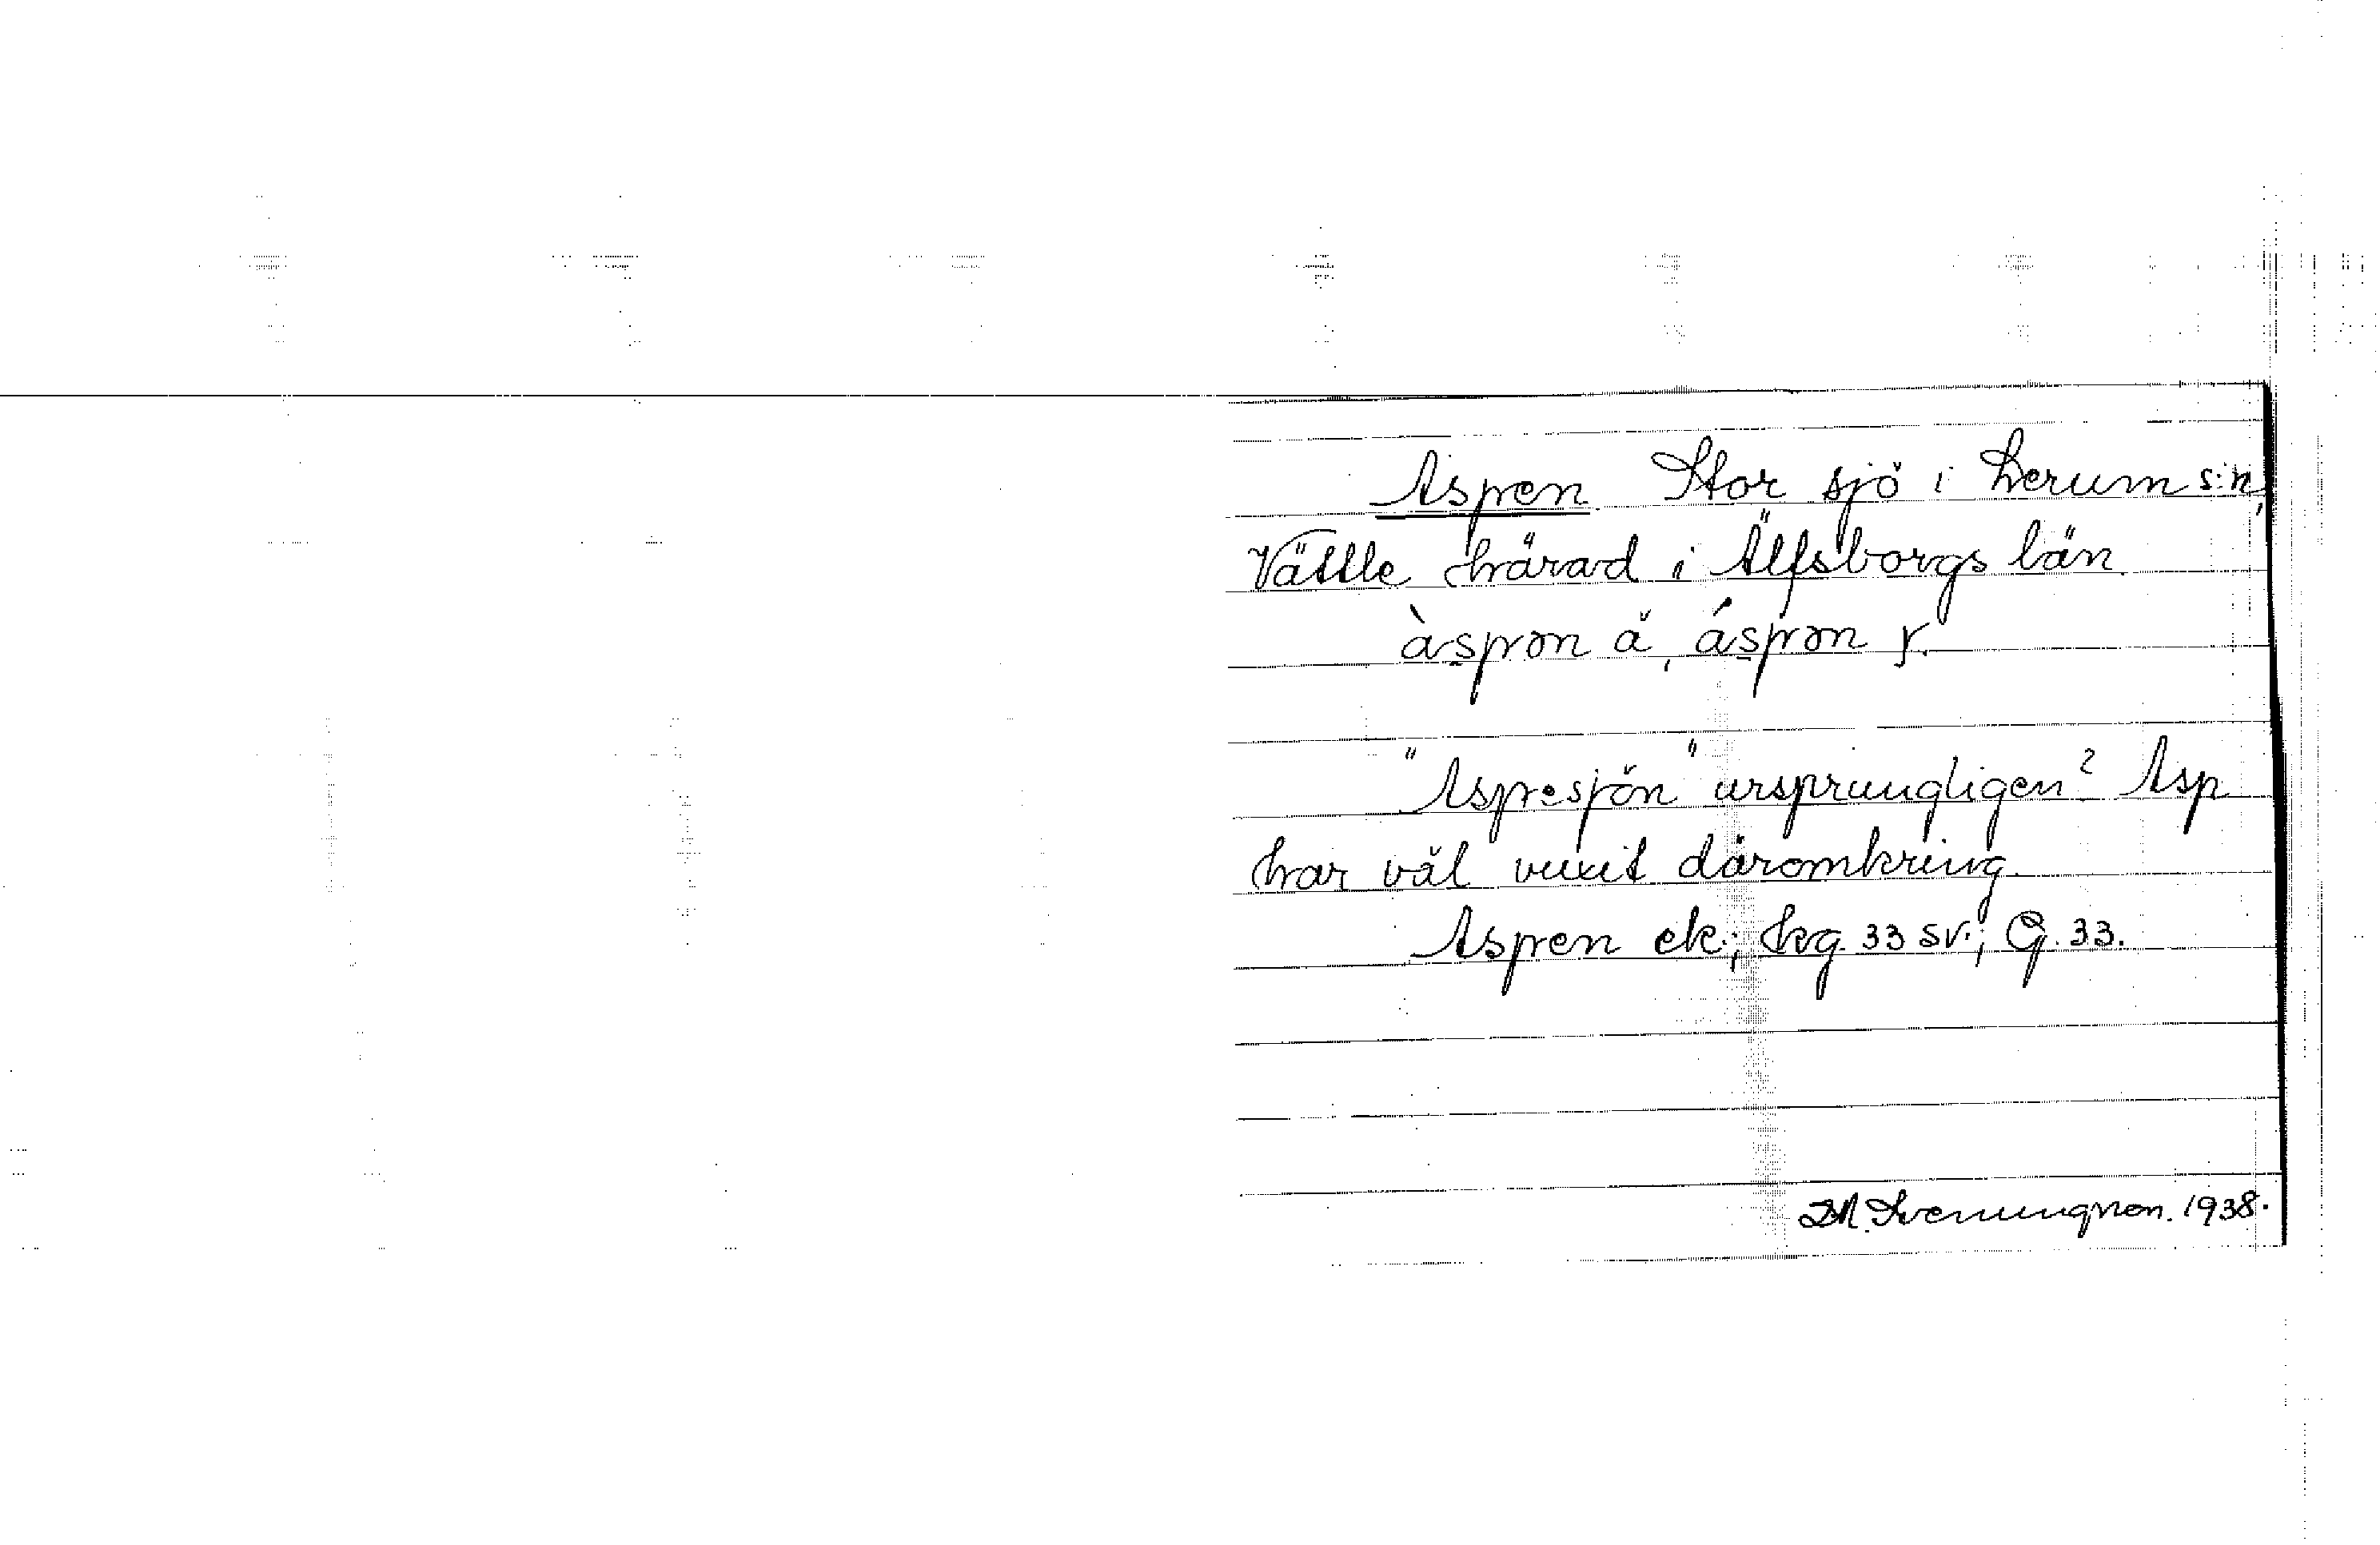 Aspen Stor sjö i Lerum s:n,
Vättle härad i Älfsborgs län.
àspən ä, áspən y.
"Aspesjön" ursprungligen? Asp
har väl vuxit däromkring.
Aspen ek.; hg. 33 sv.; G. 33.
Svenungsson. 1938.